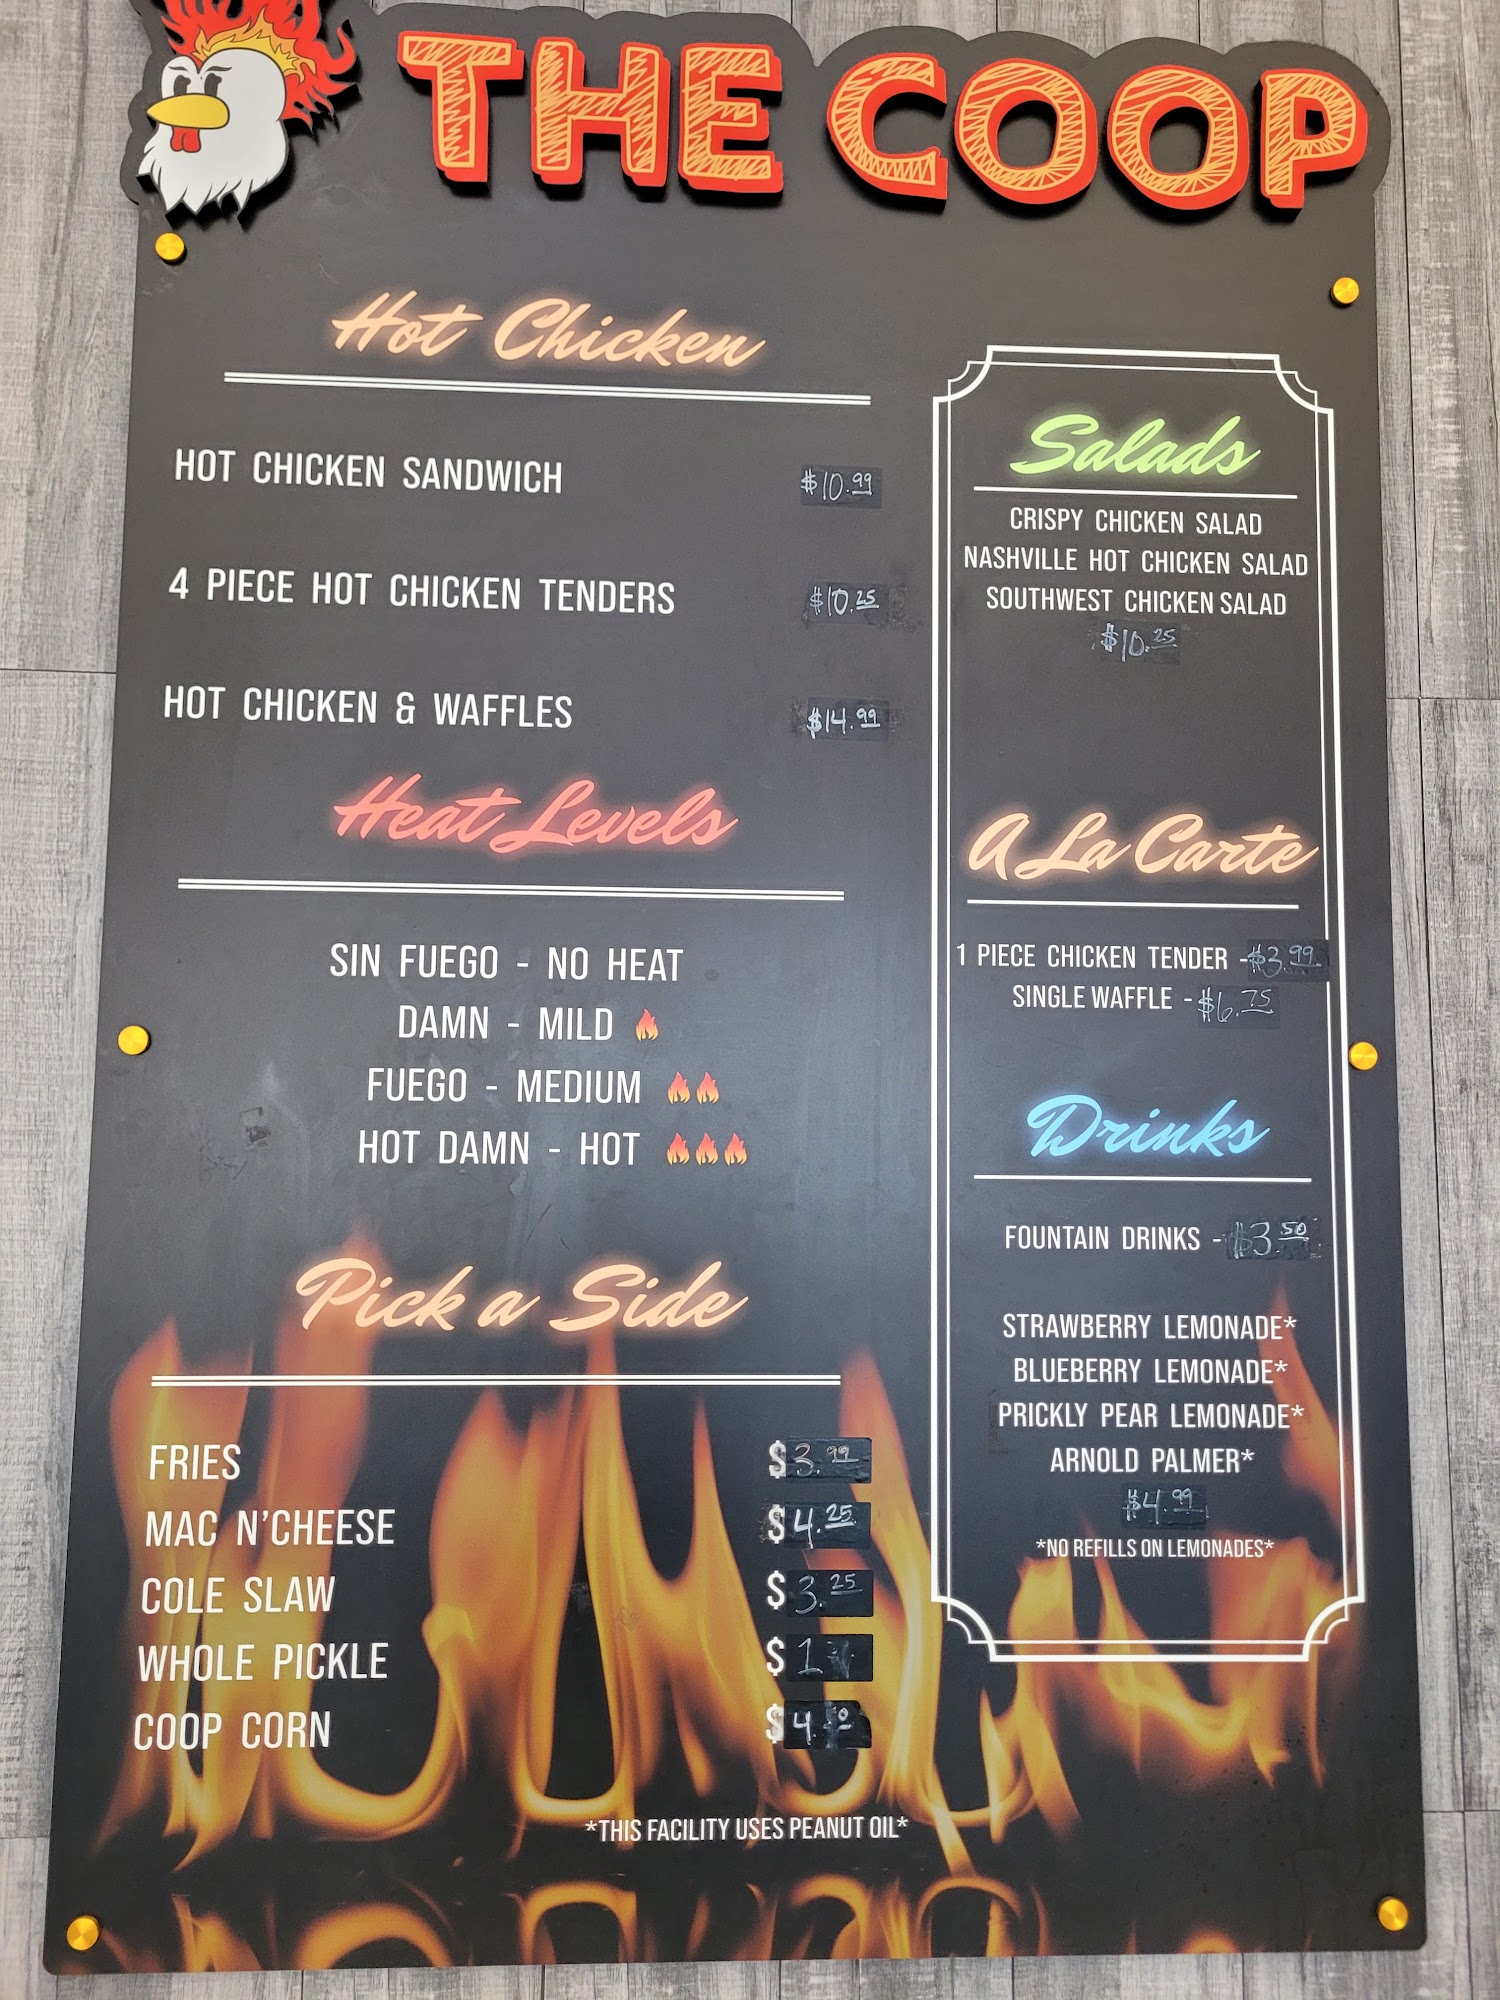 THE COOP
Hot Chicken
HOT CHICKEN SANDWICH $10.99
4 PIECE HOT CHICKEN TENDERS $10.25
HOT CHICKEN & WAFFLES $14.99
Heat Levels
SIN FUEGO - NO HEAT
DAMN - MILD
FUEGO - MEDIUM
HOT DAMN - HOT
Pick a Side
FRIES $3.99
MAC N'CHEESE $4.25
COLE SLAW $3.25
WHOLE PICKLE $1
COOP CORN $4
*THIS FACILITY USES PEANUT OIL*
Salads
CRISPY CHICKEN SALAD
NASHVILLE HOT CHICKEN SALAD
SOUTHWEST CHICKEN SALAD
$10.25
A La Carte
1 PIECE CHICKEN TENDER - $3.99
SINGLE WAFFLE - $6.75
Drinks
FOUNTAIN DRINKS - $3.50
STRAWBERRY LEMONADE*
BLUEBERRY LEMONADE*
PRICKLY PEAR LEMONADE*
ARNOLD PALMER*
$4.99
*NO REFILLS ON LEMONADES*